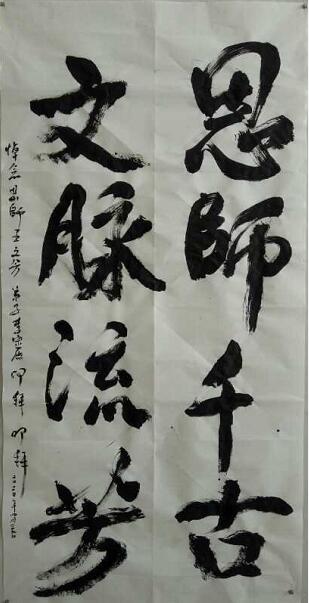 恩師千古
文脉流芳
悼念恩師王立芳 弟子李宗原 叩拜 叩拜